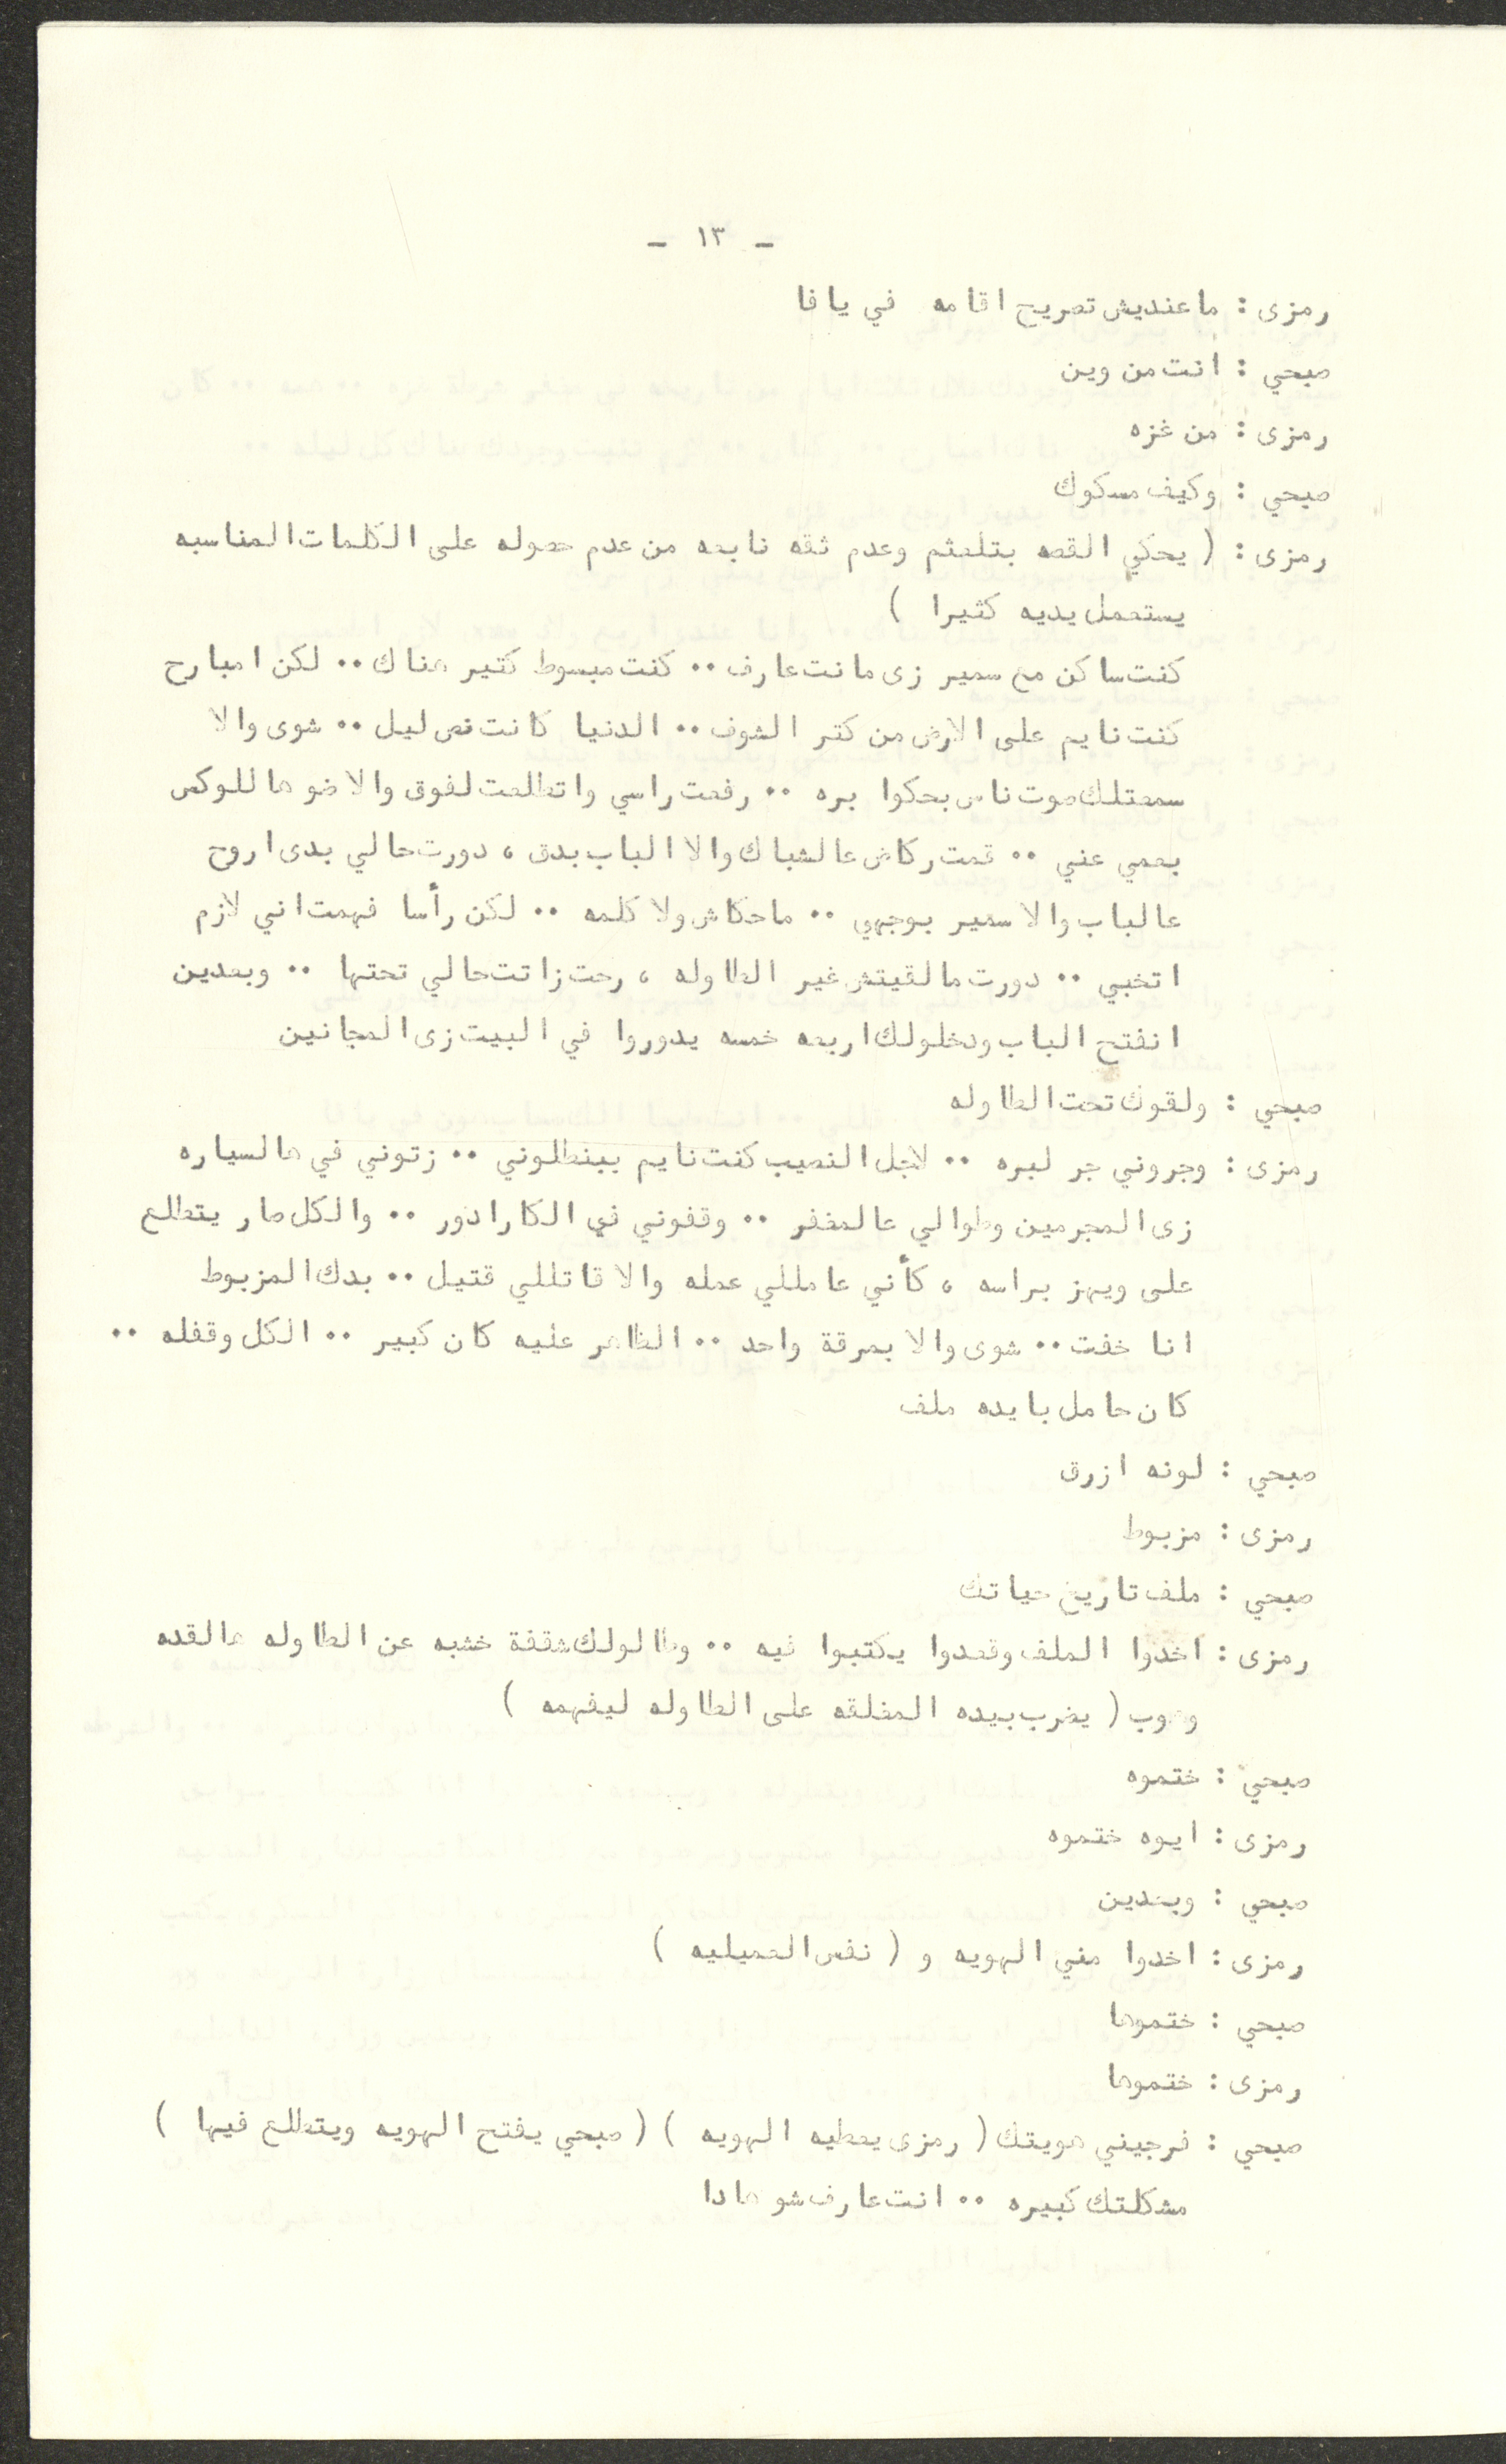 - ١٣ -
رمزى : ما عنديش تصريح اقامه في يافا
صبحي : انت من وين
رمزى : من غزه
صبحي : وكيف مسكوك
رمزى : ( يحكي القصه بتلعثم وعدم ثقه نابعه من عدم حصوله على الكلمات المناسبه
يستعمل يديه كثيرا )
كنت ساكن مع سمير زى مانت عارف .. كنت مبسوط كتير هناك .. لكن امبارح
كنت نايم على الارض من كتر الشوف .. الدنيا كانت نص ليل .. شوى والا
سمعتلك صوت ناس بحكوا بره .. رفعت راسي واتطلعت لفوق والاضو هاللوكس
بعمي عني .. قمت ركاض عالشباك والا الباب بدق ، دورت حالي بدى اروح
عالباب والا سمير بوجهي .. ماحكاش ولا كلمه .. لكن رأسا فهمت اني لازم
اتخبي .. دورت مالقيتش غير الطاوله ، رحت زاتت حالي تحتها .. وبعدين
انفتح الباب ودخلولك اربعه خمسه يدوروا في البيت زى المجانين
صبحي : ولقوك تحت الطاوله
رمزى : وجروني جر لبره .. لاجل النصيب كنت نايم ببنطلوني .. زتوني في هالسياره
زى المجرمين وطوالي عالمخفر .. وقفوني في الكارادور .. والكل صار يتطلع
على ويهز براسه ، كأني عامللي عمله والا قاتللي قتيل .. بدك المزبوط
انا خفت .. شوى والا بمرقة واحد .. الظاهر عليه كان كبير .. الكل وقفله ..
كان حامل بايده ملف
صبحي : لونه ازرق
رمزى : مزبوط
صبحي : ملف تاريخ حياتك
رمزى : اخدوا الملف وقعدوا يكتبوا فيه .. وطالولك شقفة خشبه عن الطاوله هالقده
وهوب ( يضرب بيده المغلقه على الطاوله ليفهمه )
صبحي : ختموه
رمزى : ايوه ختموه
صبحي : وبعدين
رمزى : اخدوا مني الهويه و ( نفس العميليه )
صبحي : ختموها
رمزى : ختموها
صبحي : فرجيني هويتك ( رمزى يعطيه الهويه ) ( صبحي يفتح الهويه ويتطلع فيها )
مشكلتك كبيره .. انت عارف شو هادا